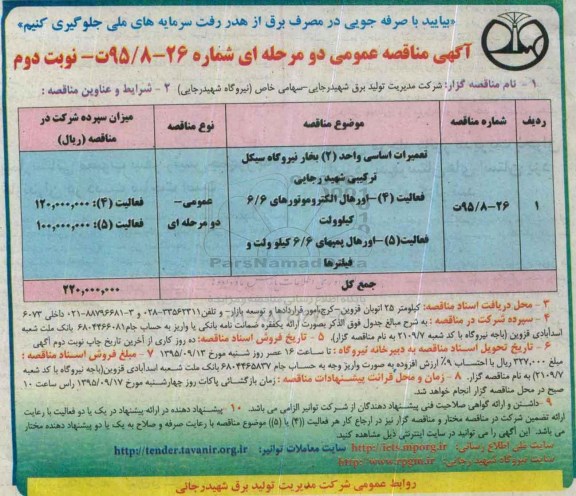 «بیایید با صرفه جویی در مصرف برق از هدر رفت سرمایه های ملی جلوگیری کنیم»
آگهی مناقصه عمومی دو مرحله ای شماره ۲۶-۹۵/۸ت- نوبت دوم
۱ - نام مناقصه گزار: شرکت مدیریت تولید برق شهیدرجایی-سهامی خاص (نیروگاه شهیدرجایی) ۲ - شرایط و عناوین مناقصه :
ردیف شماره مناقصه موضوع مناقصه نوع مناقصه میزان سپرده شرکت در مناقصه (ریال)
تعمیرات اساسی واحد (۲) بخار نیروگاه سیکل
ترکیبی شهید رجایی
فعالیت (۴)-اورهال الکتروموتورهای ۶/۶
کیلوولت
فعالیت(۵)-اورهال پمپهای ۶/۶ کیلو ولت و
فیلترها
۱ ۲۶-۹۵/۸ت
عمومی-
دو مرحله ای
فعالیت (۴): ۱۲۰,۰۰۰,۰۰۰
فعالیت (۵): ۱۰۰,۰۰۰,۰۰۰
جمع کل ۲۲۰,۰۰۰,۰۰۰
ParsNamadData
۳ - محل دریافت اسناد مناقصه: کیلومتر ۲۵ اتوبان قزوین-کرج،امور قراردادها و توسعه بازار - و تلفن۳۳۵۶۲۳۱۱-۰۲۸ و ۳-۸۸۷۹۶۶۸۱-۰۲۱ داخلی ۶۰۷۳
۴ - سپرده شرکت در مناقصه: به شرح مبالغ جدول فوق الذکر بصورت ارائه یکفقره ضمانت نامه بانکی یا واریز به حساب جام۶۸۰۴۴۶۶۰۸۱ بانک ملت شعبه
اسدآبادی قزوین (باجه نیروگاه با کد شعبه ۲۱۰۹/۷ به نام مناقصه گزار). ۵ - تاریخ فروش اسناد مناقصه: ده روز کاری از آخرین تاریخ چاپ نوبت دوم آگهی
۶ - تاریخ تحویل اسناد مناقصه به دبیرخانه نیروگاه : تا ساعت ۱۶ عصر روز شنبه مورخ ۱۳۹۵/۰۹/۱۳ ۷ - مبلغ فروش اسناد مناقصه :
۳۲۷,۰۰۰ ریال با احتساب ۹٪ ارزش افزوده به صورت واریز وجه به حساب جام ۶۸۰۴۴۶۵۸۳۷ بانک ملت شعبه اسدآبادی قزوین(باجه نیروگاه با کد شعبه
۲۱۰۹/۷) به نام مناقصه گزار. ۸ - زمان و محل قرائت پیشنهادات مناقصه : زمان بازگشائی پاکات روز چهارشنبه مورخ ۱۳۹۵/۰۹/۱۷ راس ساعت ۱۰
صبح در محل مناقصه گزار انجام خواهد شد.
۹ - داشتن و ارائه گواهی صلاحیت فنی پیشنهاد دهندگان از شرکت توانیر الزامی می باشد. ۱۰ - پیشنهاد دهنده در ارائه پیشنهاد در یک یا دو فعالیت با رعایت
ارائه تضمین شرکت در مناقصه مختار و مناقصه گزار نیز در ارجاع کار هر فعالیت ((۴) یا (۵)) موضوع مناقصه با رعایت صرفه و صلاح به یک یا دو پیشنهاد دهنده مختار
می باشد. این آگهی را می توانید در سایت اینترنتی ذیل مشاهده کنید.
سایت ملی اطلاع رسانی: http://iets.mporg.ir سایت معاملات توانیر: http://tender.tavanir.org.ir
سایت نیروگاه شهید رجایی: http://www.rpgm.ir
روابط عمومی شرکت مدیریت تولید برق شهیدرجائی